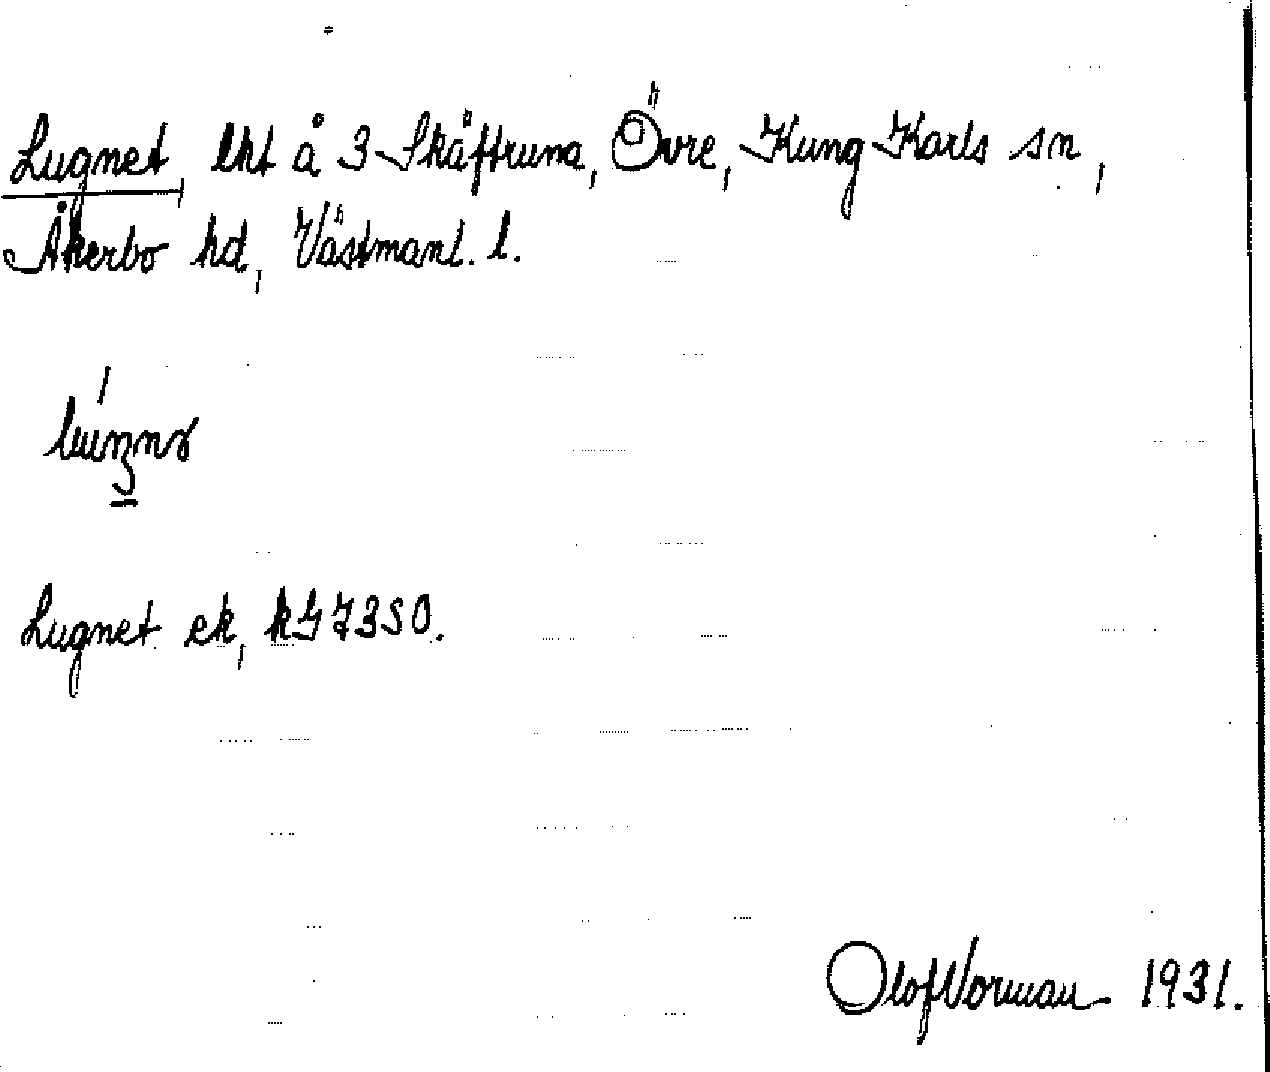 Lugnet, lht å 3 Skäftruna, Övre, Kung Karls sn,
Åkerbo hd, Västmanl. l.
Lugnet ek, k57350.
Olof Norman 1931.